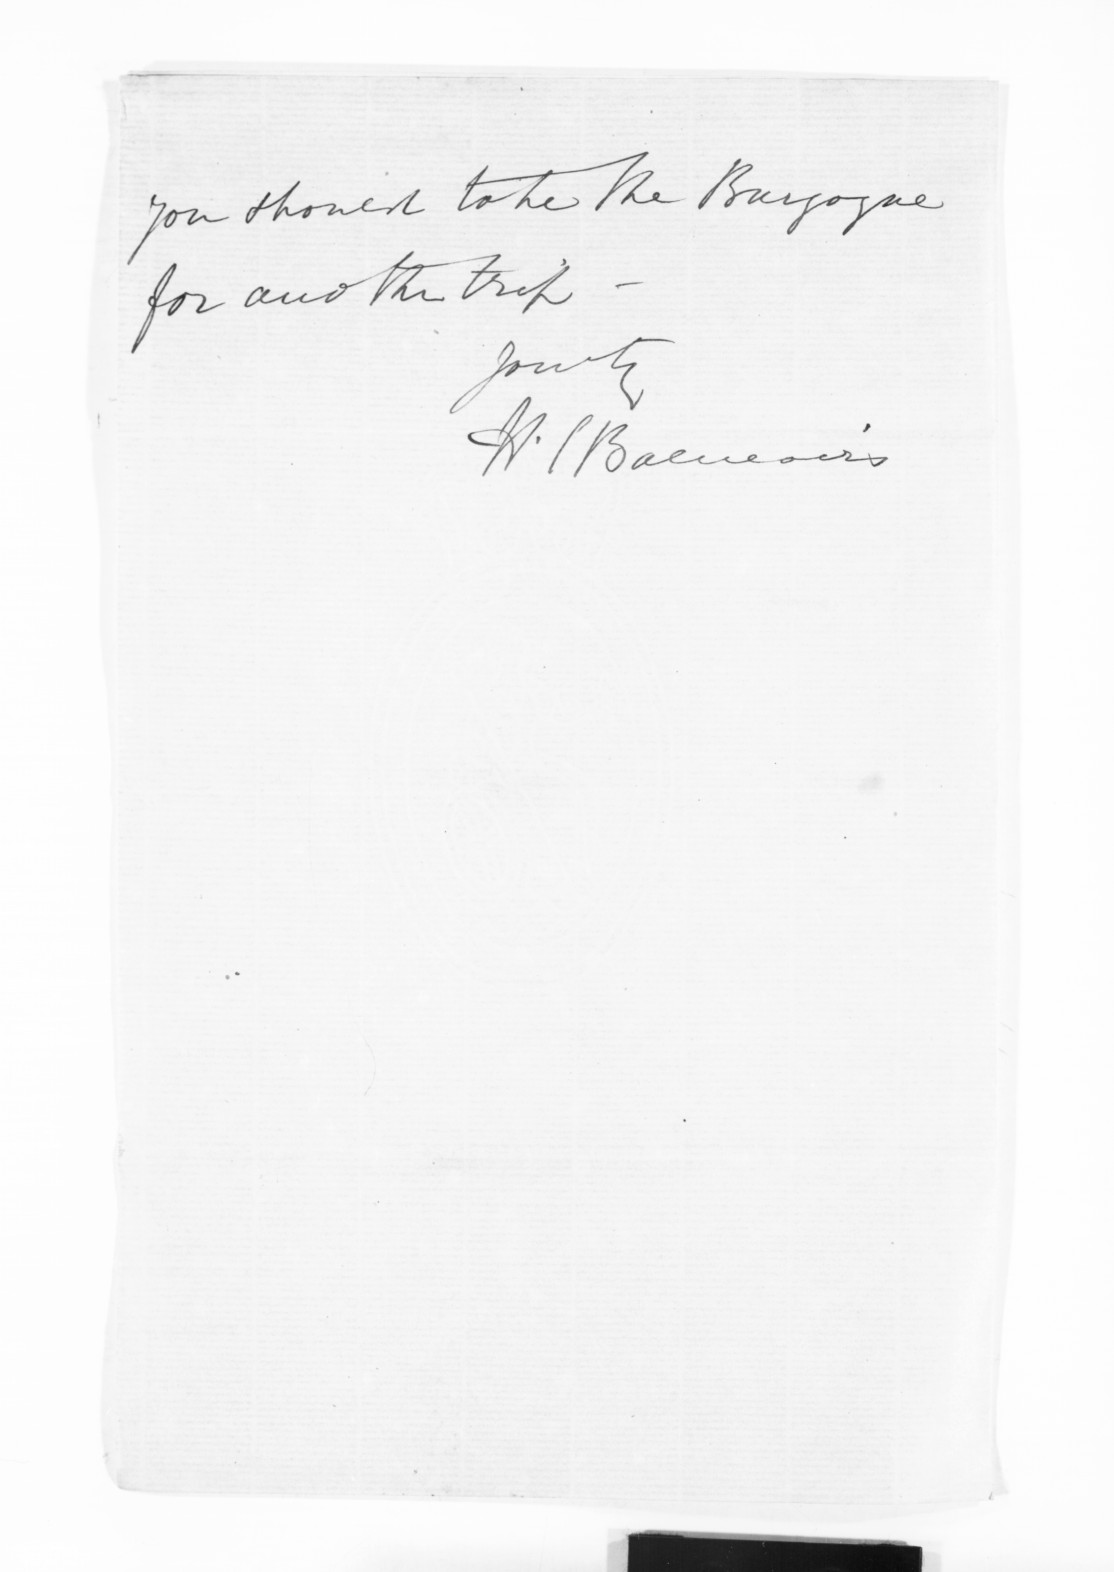 you should take the Burgogne
for another trip –
yours ty
H.